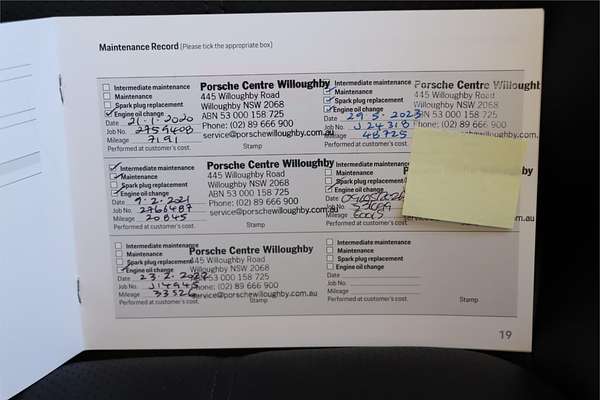 Maintenance Record (Please tick the appropriate box)
Intermediate maintenance
Maintenance
Spark plug replacement
Engine oil change
Date 21.1.2020
Job No. 2759408
Mileage 7191
Performed at customer's cost.
Porsche Centre Willoughby
445 Willoughby Road
Willoughby NSW 2068
ABN 53 000 158 725
Phone: (02) 89 666 900
service@porschewilloughby.com.au
Stamp
Intermediate maintenance
Maintenance
Spark plug replacement
Engine oil change
Date 29.5.2023
Job No. J24318
Mileage 48725
Performed at customer's cost.
Porsche Centre Willough
445 Willoughby Road
Willoughby NSW 2068
ABN 53 000 158 725
Phone: (02) 89 666 900
Intermediate maintenance
Maintenance
Spark plug replacement
Engine oil change
Date 9.2.2021
Job No. 2766487
Mileage 20845
Performed at customer's cost.
Porsche Centre Willoughby
445 Willoughby Road
Willoughby NSW 2068
ABN 53 000 158 725
Phone: (02) 89 666 900
service@porschewilloughby.com.au
Stamp
Intermediate maintenance
Maintenance
Spark plug replacement
Engine oil change
Date
Job No.
Mileage
Performed at customer's cost.
Intermediate maintenance
Maintenance
Spark plug replacement
Engine oil change
Date 23.2.2022
Job No. J14945
Mileage 33526
Performed at customer's cost.
Porsche Centre Willoughby
445 Willoughby Road
Willoughby NSW 2068
53 000 158 725
Phone: (02) 89 666 900
service@porschewilloughby.com.au
Stamp
Intermediate maintenance
Maintenance
Spark plug replacement
Engine oil change
Date
Job No.
Mileage
Performed at customer's cost.
Stamp
19